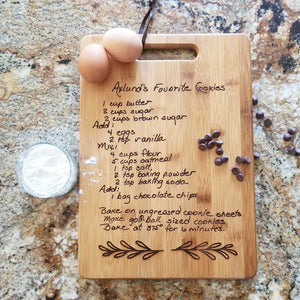 Axlund's Favorite Cookies
1 cup butter
2 cups sugar
2 cups brown sugar
Add:
4 eggs
2 tsp vanilla
Mix:
4 cups flour
5 cups oatmeal
1 tsp salt
2 tsp baking powder
2 tsp baking soda
Add:
1 bag chocolate chips
Bake on ungreased cookie sheets
Make golf ball sized cookies
Bake at 375° for 6 minutes.